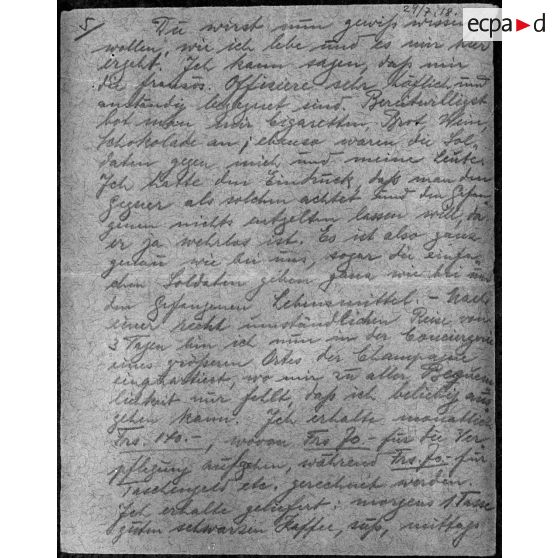 5/ 24/7. 18.
ecpad
Du wirst nun gewiß wissen
wollen, wie ich lebe und es mir hier
ergeht. Ich kann sagen, daß mir
die französ. Offiziere sehr höflich und
anständig begegnet sind. Bereitwilligst
bot man mir Cigaretten, Brot, Wein,
Schokolade an; ebenso waren die Sol-
daten gegen mich und meine Leute.
Ich hatte den Eindruck, daß man den
Gegner als solchen achtet und den Gefan-
genen nichts entgelten lassen will, da
er ja wehrlos ist. Es ist also ganz
genau wie bei uns, sogar die einfa-
chen Soldaten geben ganz wie bei uns
den Gefangenen Lebensmittel. - Nach
einer recht umständlichen Reise von
3 Tagen bin ich nun in der Conciergerie
eines größeren Ortes der Champagne
einquartiert, wo mir zu aller Bequem-
lichkeit nur fehlt, daß ich beliebig aus
gehen kann. Ich erhalte monatlich
Frs. 140.-, wovon Frs 70.- für die Ver-
pflegung aufgehen, während Frs. 70.- für
Taschengeld etc. gerechnet werden.
Ich erhalte geliefert: morgens 1 Tasse
guten schwarzen Kaffee, süß, mittags